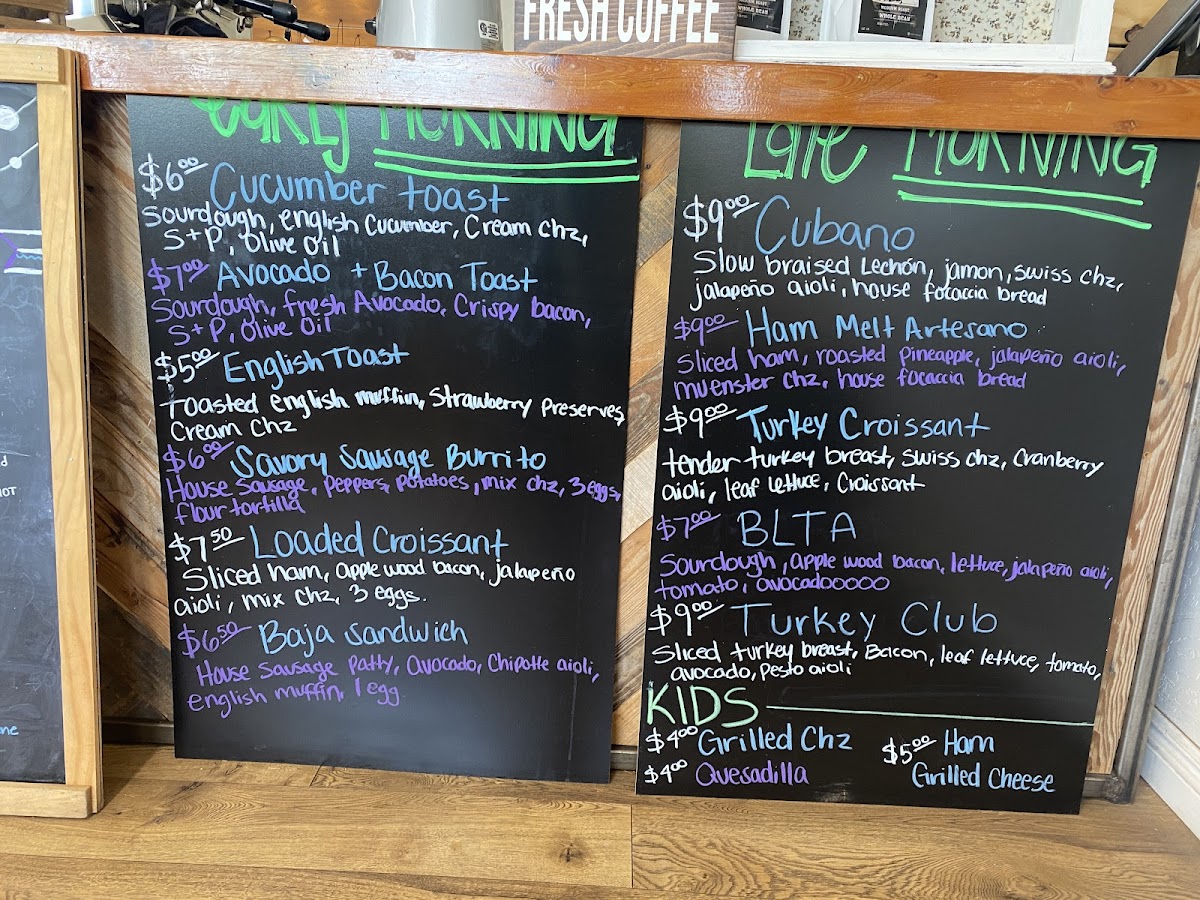 FRESH COFFEE
WHOLE BEAN
WHOLE BEAN
Early MORNING
$6.00 Cucumber toast
Sourdough, english Cucumber, Cream chz,
S+P, Olive Oil
$7.00 Avocado + Bacon Toast
Sourdough, fresh Avocado, Crispy bacon,
S+P, Olive Oil
$5.00 English Toast
Toasted english muffin, Strawberry Preserves,
Cream Chz
$6.00 Savory Sausage Burrito
House Sausage, Peppers, potatoes, mix chz, 3 eggs,
flour tortilla
$7.50 Loaded Croissant
Sliced ham, apple wood bacon, jalapeño
aioli, mix chz, 3 eggs.
$6.50 Baja Sandwich
House Sausage Patty, avocado, Chipotle aioli,
english muffin, 1 egg
Late MORNING
$9.00 Cubano
Slow braised Lechón, jamon, swiss chz,
jalapeño aioli, house focaccia bread
$9.00 Ham Melt Artesano
Sliced ham, roasted pineapple, jalapeño aioli,
muenster chz, house focaccia bread
$9.00 Turkey Croissant
tender turkey breast, swiss chz, Cranberry
aioli, leaf lettuce, Croissant
$7.00 BLTA
Sourdough, apple wood bacon, lettuce, jalapeño aioli,
tomato, avocadooooo
$9.00 Turkey Club
Sliced turkey breast, Bacon, leaf lettuce, tomato,
avocado, Pesto aioli
KIDS
$4.00 Grilled Chz
$4.00 Quesadilla
$5.00 Ham
Grilled Cheese